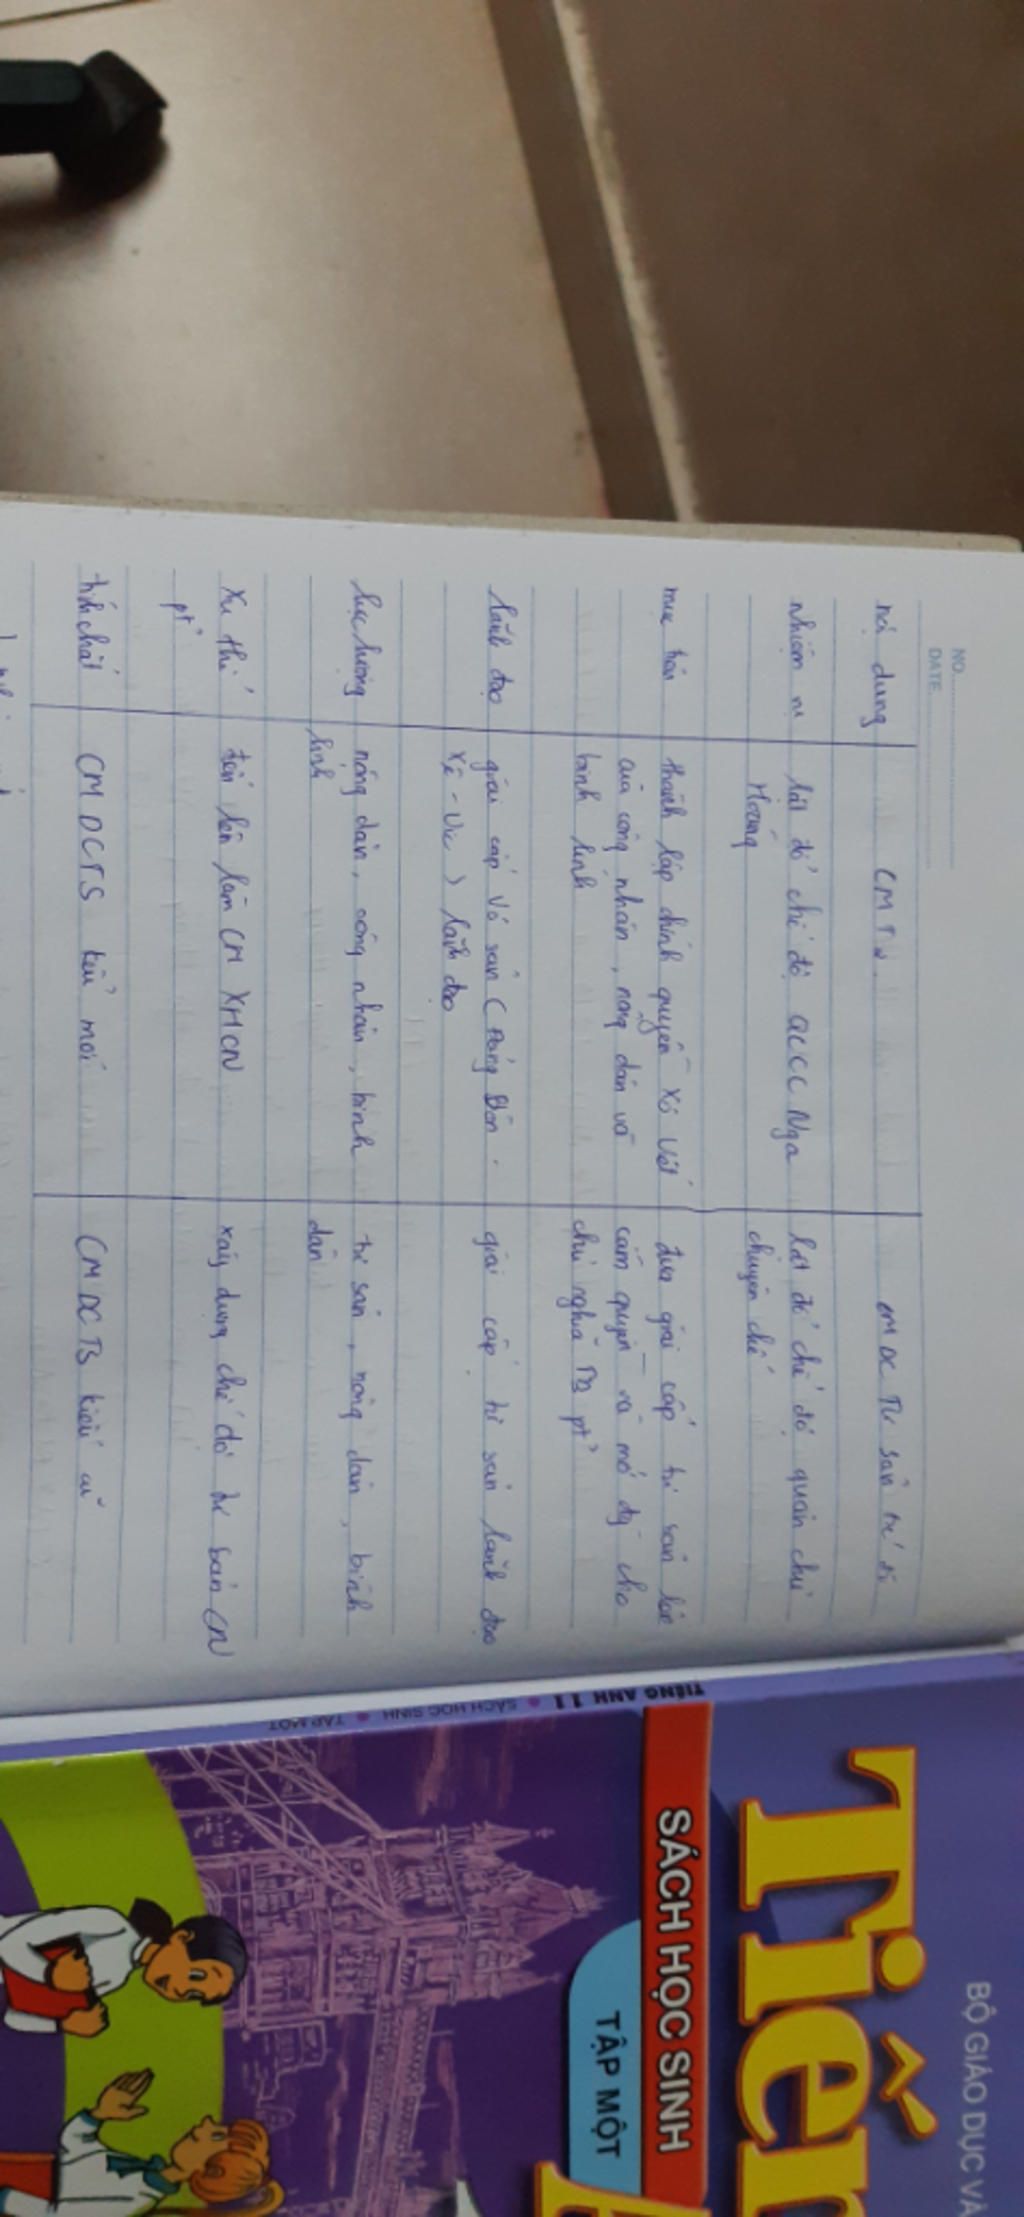 NO.
DATE.
nội dung CM T2. CM DC Tư sản trc đó
nhiệm vụ lật đổ chế độ QCCC Nga lật đổ chế độ quân chủ
Hoàng chuyên chế
mục tiêu thành lập chính quyền Xô Viết đưa giai cấp tư sản lên
của công nhân, nông dân và cầm quyền và mở đg cho
binh lính chủ nghĩa TB pt
lãnh đạo giai cấp vô sản (Đảng Bôn- giai cấp tư sản lãnh đạo
xê-vic) lãnh đạo
lực lượng nông dân, công nhân, binh tư sản, nông dân, bình
lính dân
xu thế tiến lên làm CM XHCN xây dựng chế độ tư bản CN
pt
tính chất CM DCTS kiểu mới CM DCTS kiểu cũ
TIẾNG ANH 11 • SÁCH HỌC SINH • TẬP MỘT
BỘ GIÁO DỤC VÀ
SÁCH HỌC SINH
TẬP MỘT